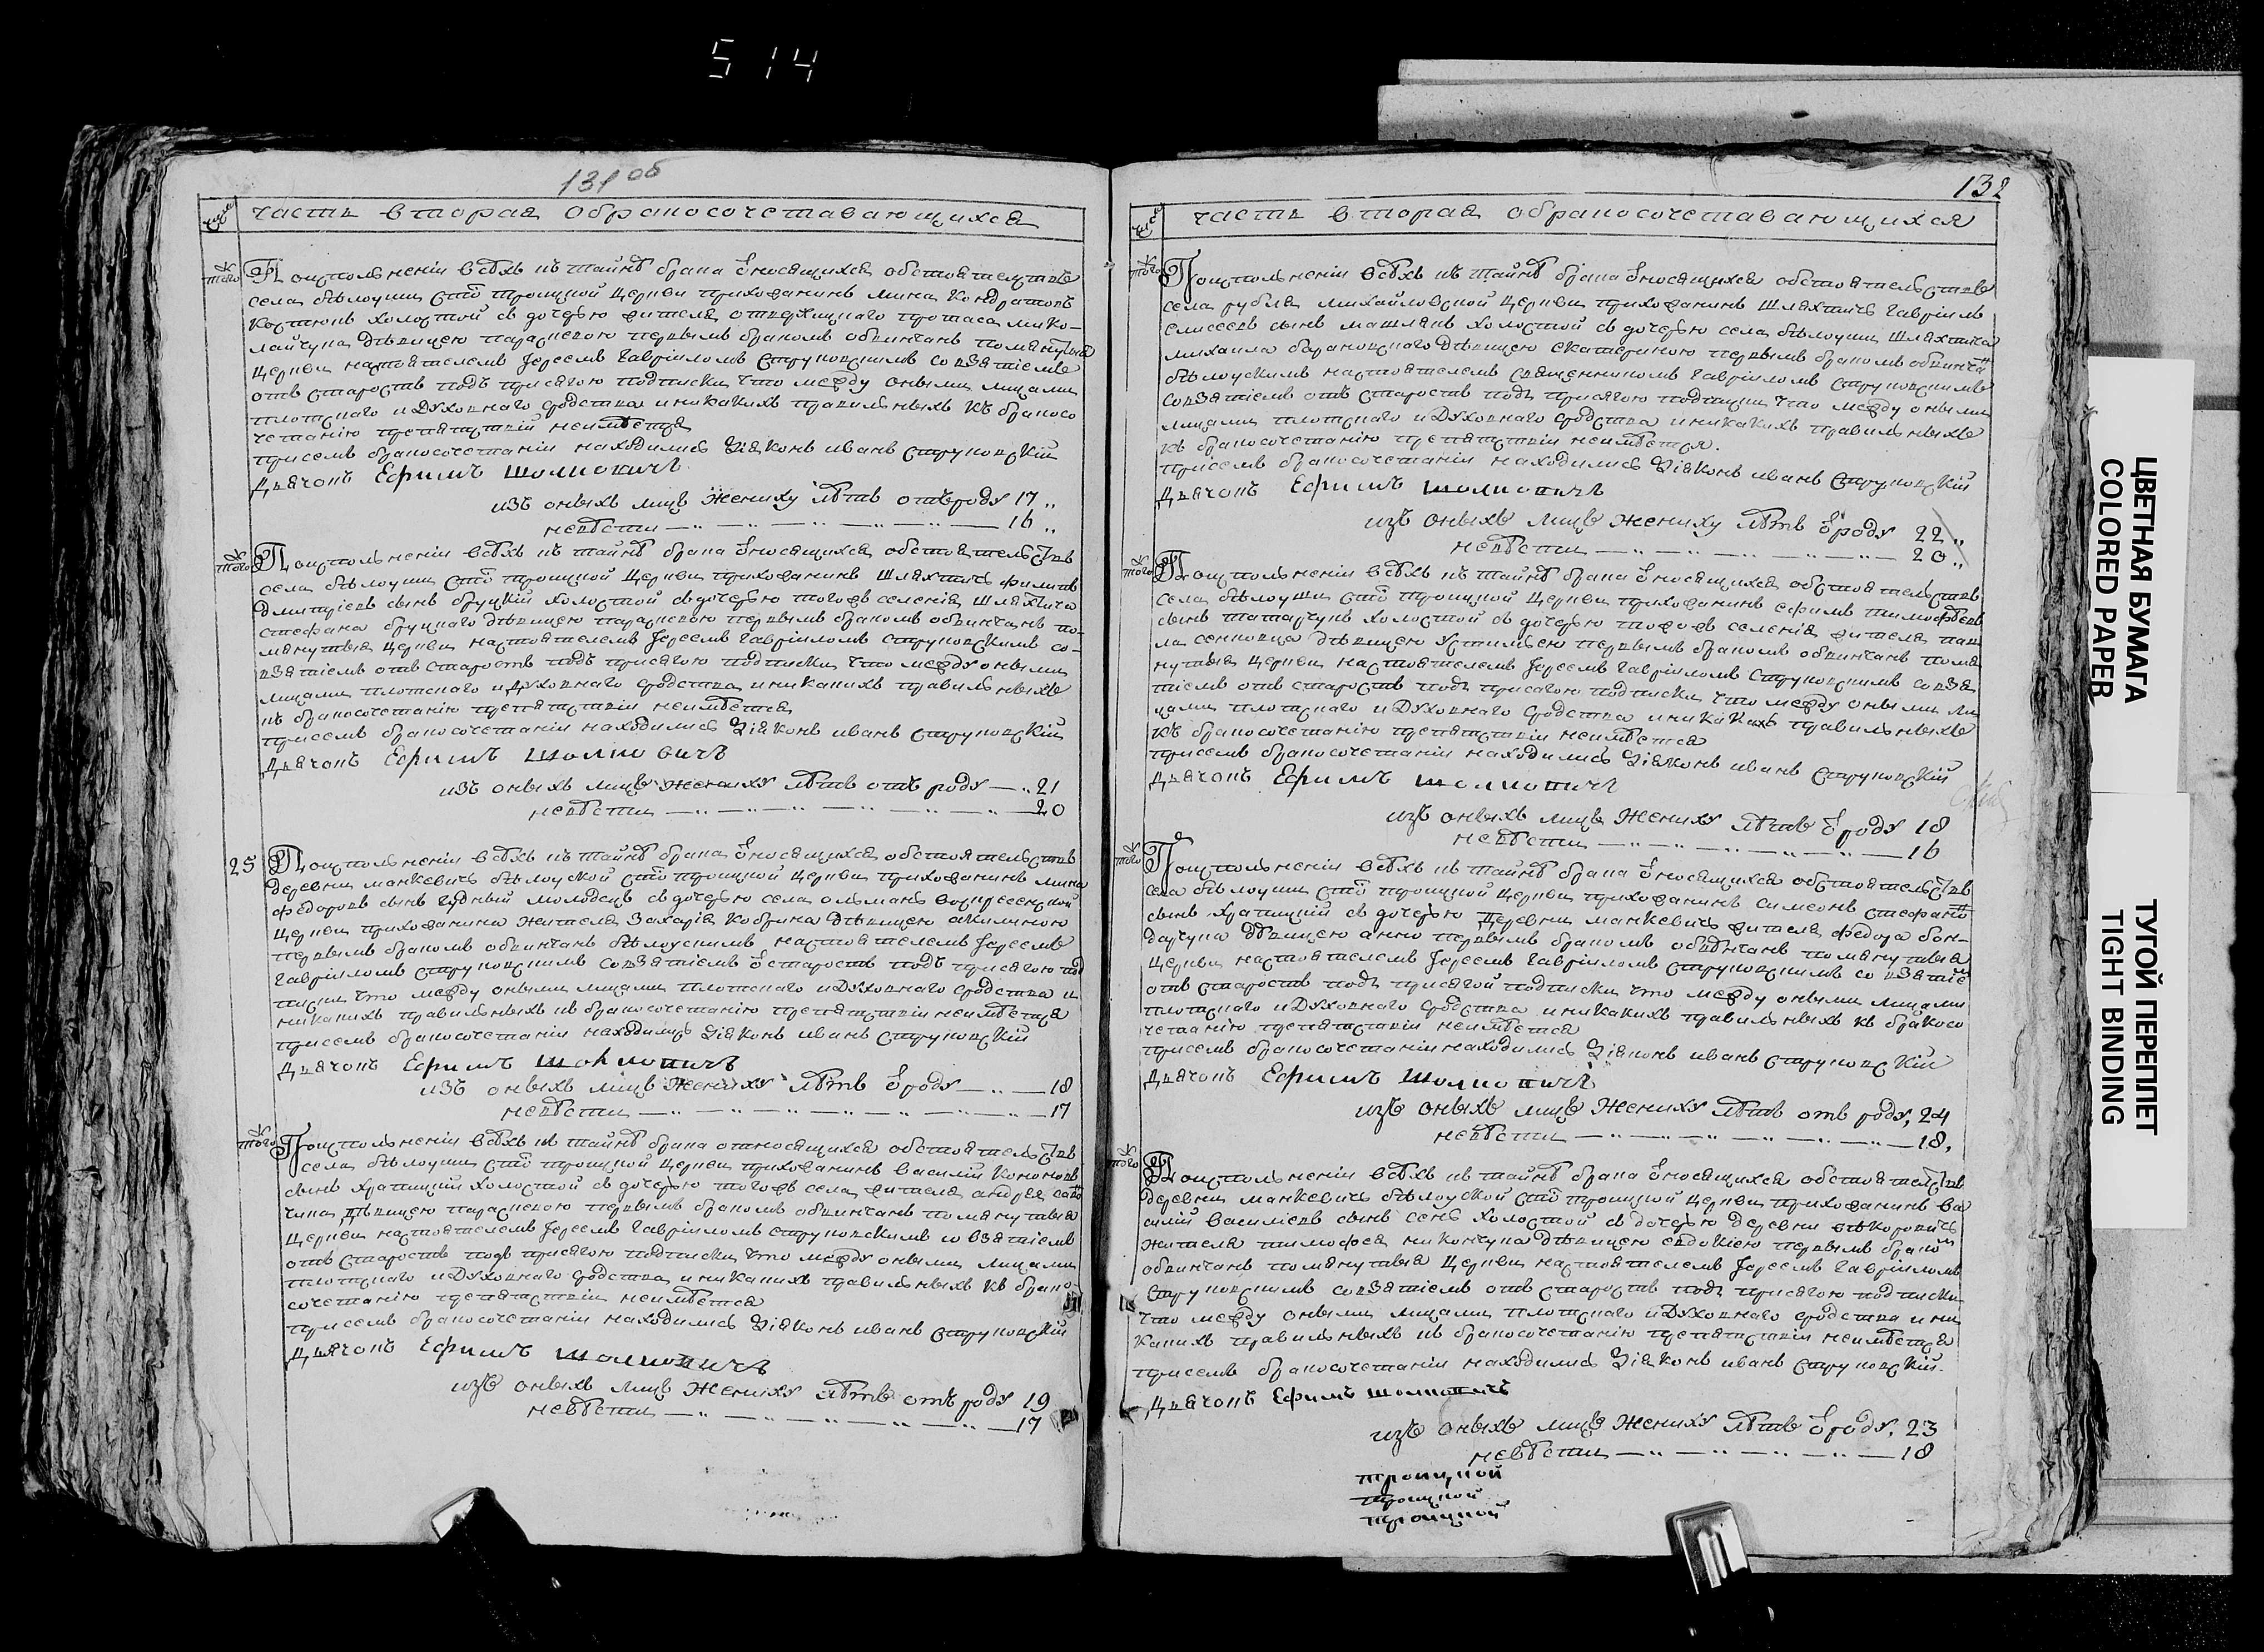 514
131 об
числа
часть вторая обракосочетавающихся
тогоже
Поисполненіи всѣхъ къ тайнѣ брака ѿносящихся обстоятелствъ
села бѣлоуши стѡ троицкой церкви прихожанинъ мина Кондратовъ
холостой съ дочерью жителя протаса мико-
лайчука дѣвицею параскевою первымъ бракомъ обвѣнчанъ помянутыя
церкви настоятелемъ Іереемъ Гавріиломъ Струковскимъ совзятіемъ
отъ старостъ подъ присягою подписки что между оными лицами
плотскаго идуховнаго сродства иникакихъ правильныхъ къ бракосо
четанію препятствій неимѣется
присемъ бракосочетаніи находились діаконъ иванъ струковскій
дьячокъ Ефимъ Шоломовичъ
изъ оныхъ лицъ жениху лѣтъ отъроду 17 „
невѣсти — „ — „ — „ — „ — „ — 16 „
тогоже
Поисполненіи всѣхъ къ тайнѣ брака ѿносящихся обстоятельствъ
села бѣлоуши стѡ троицкой церкви прихожанинъ шляхтичъ филипъ
дмитріевъ сынъ бруцкій холостой съдочерью тогожъ селенія шляхтича
стефана бруцкаго дѣвицею параскевою первымъ бракомъ обвѣнчанъ по-
мянутыя церкви настоятелемъ Іереемъ Гавріиломъ струковскимъ со-
взятіемъ отъ старостъ подъ присягою подписки что между оными
лицами плотскаго идуховнаго сродства иникакихъ правильныхъ
къ бракосочетанію препятствіи неимѣется
присемъ бракосочетаніи находились діаконъ иванъ струковскій
дьячокъ Ефимъ Шоломовичъ
изъ оныхъ лицъ жениху лѣтъ отъ роду — „ 21
невѣсти — „ — „ — „ — „ — „ — 20
25
Поисполненіи всѣхъ къ тайнѣ брака ѿносящихся обстоятельствъ
деревни манкевичь бѣлоуской стѡ троицкой церкви прихожанинъ мина
федоровъ сынъ молодецъ съдочерью села ольманъ воскресенской
церкви прихожанина жителя захарія кобрина дѣвицею акилиною
первымъ бракомъ обвѣнчанъ бѣлоускимъ настоятелемъ Іереемъ
Гавріиломъ струковскимъ совзятіемъ ѿ старостъ подъ присягою под
писки что между оными лицами плотскаго идуховнаго сродства и
никакихъ правильныхъ къ бракосочетанію препятствіи неимѣется
присемъ бракосочетаніи находились діаконъ иванъ струковскій
дьячокъ Ефимъ Шоломовичъ
изъ оныхъ лицъ жениху лѣтъ ѿроду — „ — 18
невѣсти — „ — „ — „ — „ — „ — 17
тогоже
Поисполненіи всѣхъ къ тайнѣ брака относящихся обстоятельствъ
села бѣлоуши стѡ троицкой церкви прихожанинъ василій Кононовъ
сынъ храпицкій холостой съ дочерью тогожъ села жителя андрея
дѣвицею параскевою первымъ бракомъ обвѣнчанъ помянутыя
церкви настоятелемъ Іереемъ Гавріиломъ струковскимъ совзятіемъ
отъ старостъ подъ присягою подписки что между оными лицами
плотскаго идуховнаго сродства иникакихъ правильныхъ къ брако-
сочетанію препятствіи неимѣется
присемъ бракосочетаніи находились діаконъ иванъ струковскій
дьячокъ Ефимъ Шоломовичъ
изъ оныхъ лицъ жениху лѣтъ отъ роду 19
невѣсти — „ — „ — „ — „ — „ — 17
132
числа
часть вторая обракосочетавающихся
тогоже
Поисполненіи всѣхъ къ тайнѣ брака ѿносящихся обстоятельствъ
села рубля михайловской церкви прихожанинъ шляхтичъ гавріилъ
елисеевъ сынъ машлякъ холостой съ дочерью села бѣлоуши шляхтича
михаила барановскаго дѣвицею екатериною первымъ бракомъ обвѣнча
бѣлоускимъ настоятелемъ священникомъ Гавріиломъ струковскимъ
совзятіемъ отъ старостъ подъ присягою подписки что между оными
лицами плотскаго идуховнаго сродства иникакихъ правильныхъ
къ бракосочетанію препятствіи неимѣется.
присемъ бракосочетаніи находились діаконъ иванъ струковскій
дьячокъ Ефимъ Шоломовичъ
изъ оныхъ лицъ жениху лѣтъ ѿроду 22 „
невѣсти — „ — „ — „ — „ — „ — 20 „
тогоже
Поисполненіи всѣхъ къ тайнѣ брака ѿносящихся обстоятельствъ
села бѣлоуши стѡ троицкой церкви прихожанинъ ефимъ тимофѣевъ
сынъ татарчукъ холостой съ дочерью тогожъ селенія жителя пав
ла сенковца дѣвицею устиньею первымъ бракомъ обвѣнчанъ помя
нутыя церкви настоятелемъ Іереемъ Гавріиломъ струковскимъ совзя
тіемъ отъ старостъ подъ присягою подписки что между оными ли
цами плотскаго идуховнаго сродства иникакихъ правильныхъ
къ бракосочетанію препятствіи неимѣется
присемъ бракосочетаніи находились діаконъ иванъ струковскій
дьячокъ Ефимъ Шоломовичъ
изъ оныхъ лицъ жениху лѣтъ ѿ роду 18
невѣсти — „ — „ — „ — „ — „ — 16
тогоже
Поисполненіи всѣхъ къ тайнѣ брака ѿносящихся обстоятельствъ
села бѣлоуши стѡ троицкой церкви прихожанинъ симеонъ стефано
сынъ храпицкій съ дочерью деревни манкевичь жителя федора бон-
дарчука дѣвицею анною первымъ бракомъ обвѣнчанъ помянутыя
церкви настоятелемъ Іереемъ Гавріиломъ струковскимъ совзятіе
отъ старостъ подъ присягой подписки что между оными лицами
плотскаго идуховнаго сродства иникакихъ правильныхъ къ бракосо
четанію препятствіи неимѣется
присемъ бракосочетаніи находились діаконъ иванъ струковскій
дьячокъ Ефимъ Шоломовичъ
изъ оныхъ лицъ жениху лѣтъ отъ роду, 24
невѣсти — „ — „ — „ — „ — „ — 18,
тогоже
Поисполненіи всѣхъ къ тайнѣ брака ѿносящихся обстоятельствъ
деревни манкевичь бѣлоуской стѡ троицкой церкви прихожанинъ ва
силій василіевъ сынъ сенъ холостой съ дочерью деревни
жителя тимофея никончука дѣвицею евдокіею первымъ брако
обвѣнчанъ помянутыя церкви настоятелемъ Іереемъ Гавріиломъ
струковскимъ совзятіемъ отъ старостъ подъ присягою подписки
что между оными лицами плотскаго идуховнаго сродства и ни
какихъ правильныхъ къ бракосочетанію препятствіи неимѣется
присемъ бракосочетаніи находились діаконъ иванъ струковскій.
дьячокъ Ефимъ Шоломовичъ
изъ оныхъ лицъ жениху лѣтъ ѿроду, 23
невѣсти — „ — „ — „ — „ — 18
троицкой
троицкой
троицкой
ЦВЕТНАЯ БУМАГА
COLORED PAPER
ТУГОЙ ПЕРЕПЛЕТ
TIGHT BINDING